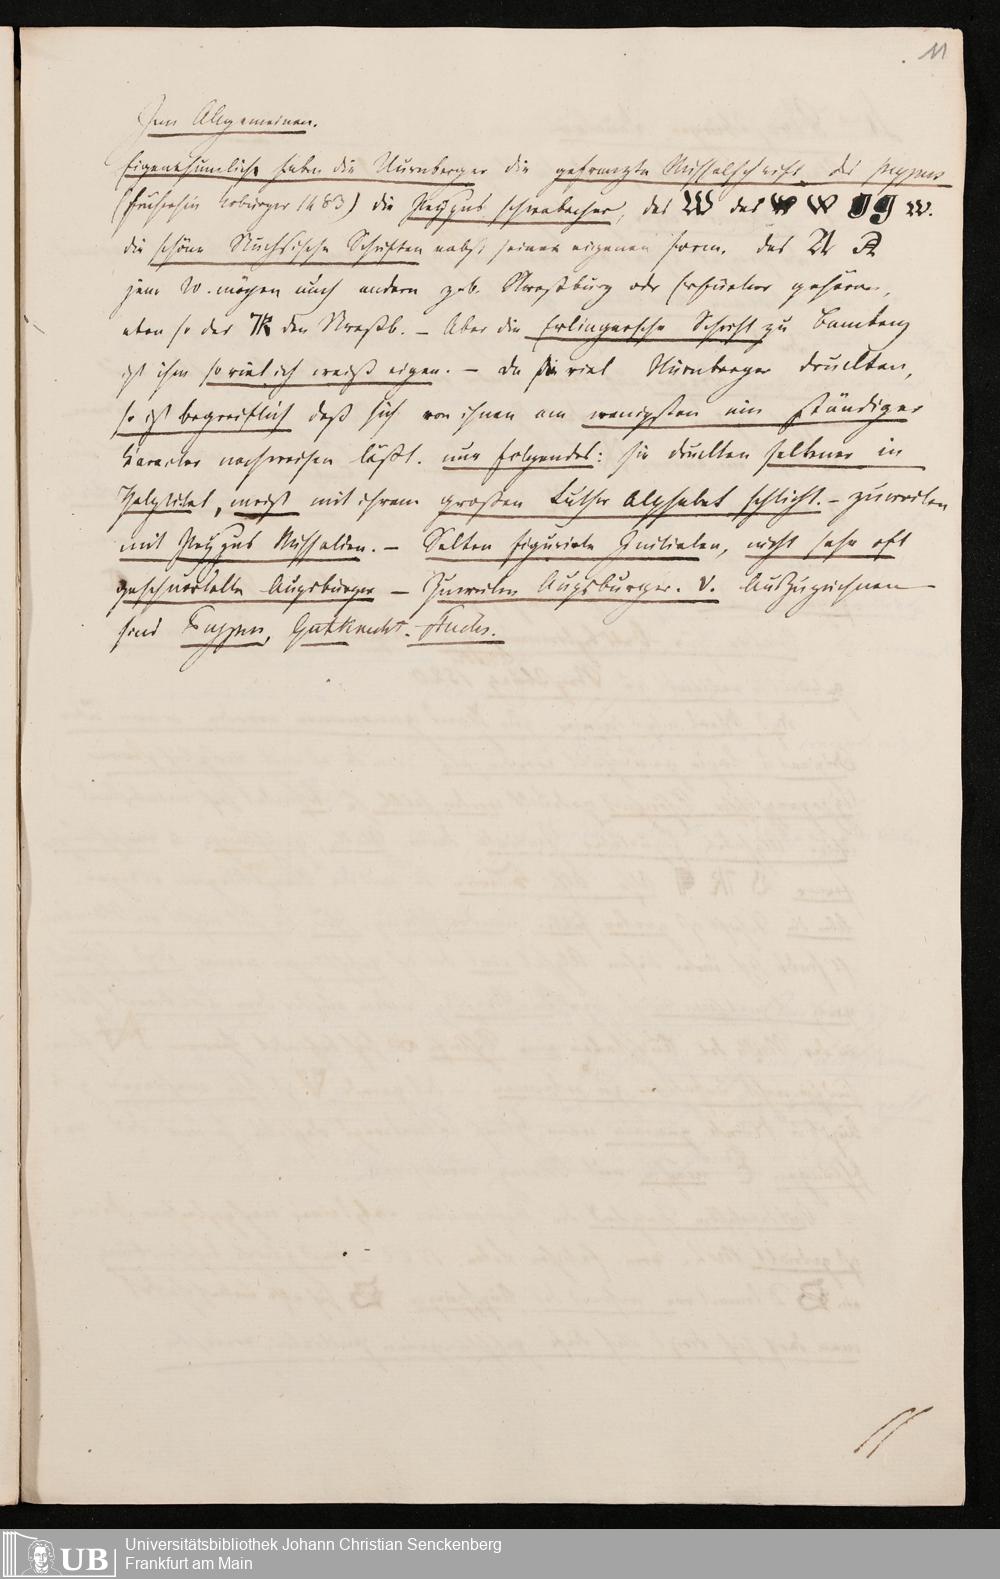 11
Im Allgemeinen.
Eigenthumliche haben die Nurnberger die gefranzte Missalschrift des Peypus
(Fruherhin Koburger 1483) die Peypus schwabacher, das W das W W J J W.
die schöne Stuchsische Schriften nebst seiner eigenen Form. das A A
jene W. mögen auch andern z.b. Strassburg oder Erfurter gehören,
eben so das K den Strassb. – Aber die Erlingersche Schrift zu Bamberg
ist ihm so viel ich weiß eigen. – Da sie viel Nürnberger druckten,
so ist begreiflich daß sich von ihnen am wenigsten ein ständiger
Caracter nachweisen läßt. nur folgendes: sie druckten seltener in
meist mit ihrem großen Luther Alphabet schlicht. – zuweilen
mit Peypus Missalien. – Selten figurirte Initialen, nicht sehr oft
geschnörkelte Augsburger – Zuweilen Augsburger. V. Auszuzeichnen
sind Peypus, Gutknecht. Stuchs.
Universitätsbibliothek Johann Christian Senckenberg
Frankfurt am Main
UB